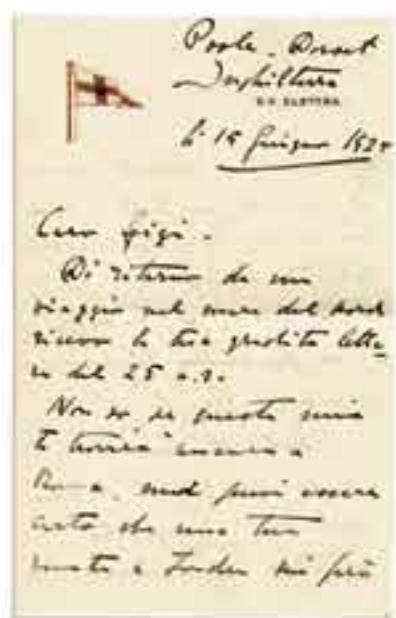 Poole - Dorset
Inghilterra
S.Y. ELETTRA
li 15 Giugno 192
Caro Gigi -
Di ritorno da un
viaggio nel mare del Nord
ricevo la tua gradita lette-
ra del 25 u.s.
Non so se questa mia
ti troverà ancora a
Roma, puoi essere
certo che una tua
a Londra mi farà